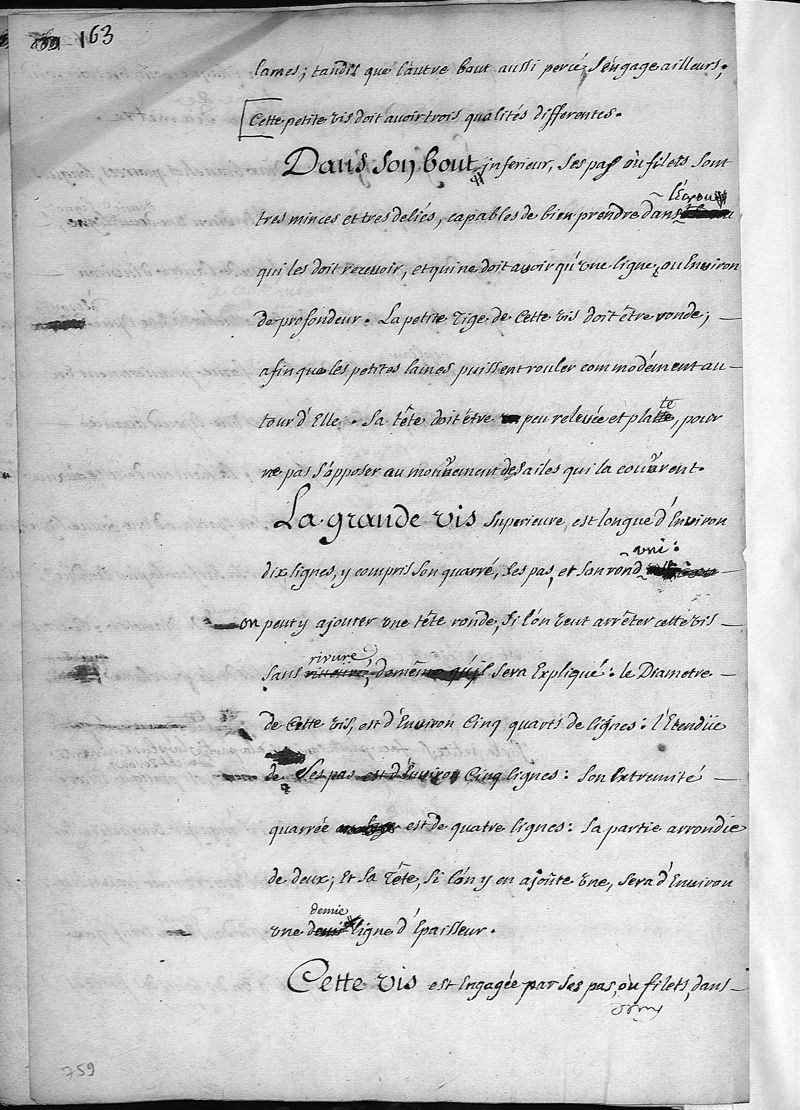 163
lames; tandis que l'autre bout aussi percé, s'engage ailleurs;
Cette petite vis doit avoir trois qualités differentes.
Dans son bout inferieur, ses pas où filets sont
l'Ecrou
tres minces et tres deliés, capables de bien prendre dans
qui les doit recevoir, et qui ne doit avoir qu'une ligne, ou Environ
de profondeur. La petite Tige de Cette vis doit être ronde;
afin que les petites lames puissent rouler commodément au-
tour d'Elle. Sa tête doit être peu relevée et platte, pour
ne pas s'apposer au mouvement des ailes qui la couvrent.
La grande vis superieure, est longue d'Environ
uni:
dix lignes, y compris son quarré, ses pas, et son rond
on peut y ajouter une tête ronde, si l'on veut arrêter cette vis
rivure
sans de même qu'il sera Expliqué: le Diametre
de Cette vis, est d'Environ Cinq quarts de lignes: l'Etendüe
de ses pas est d'Environ Cinq lignes: son Extremité
quarrée est de quatre lignes: sa partie arrondie
de deux; Et sa tête, si l'on y en ajoûte une, sera d'Environ
demie
une ligne d'Epaisseur.
Cette vis est Engagée par ses pas, où filets, dans
759